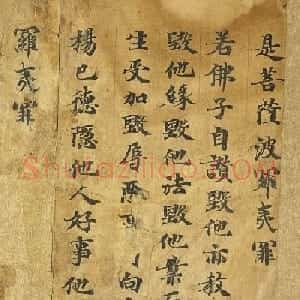 是菩薩波羅夷罪
若佛子自讚毀他亦教
毀他緣毀他法毀他業
生受加毀辱事向
揚己德隱他人好事他
羅夷罪